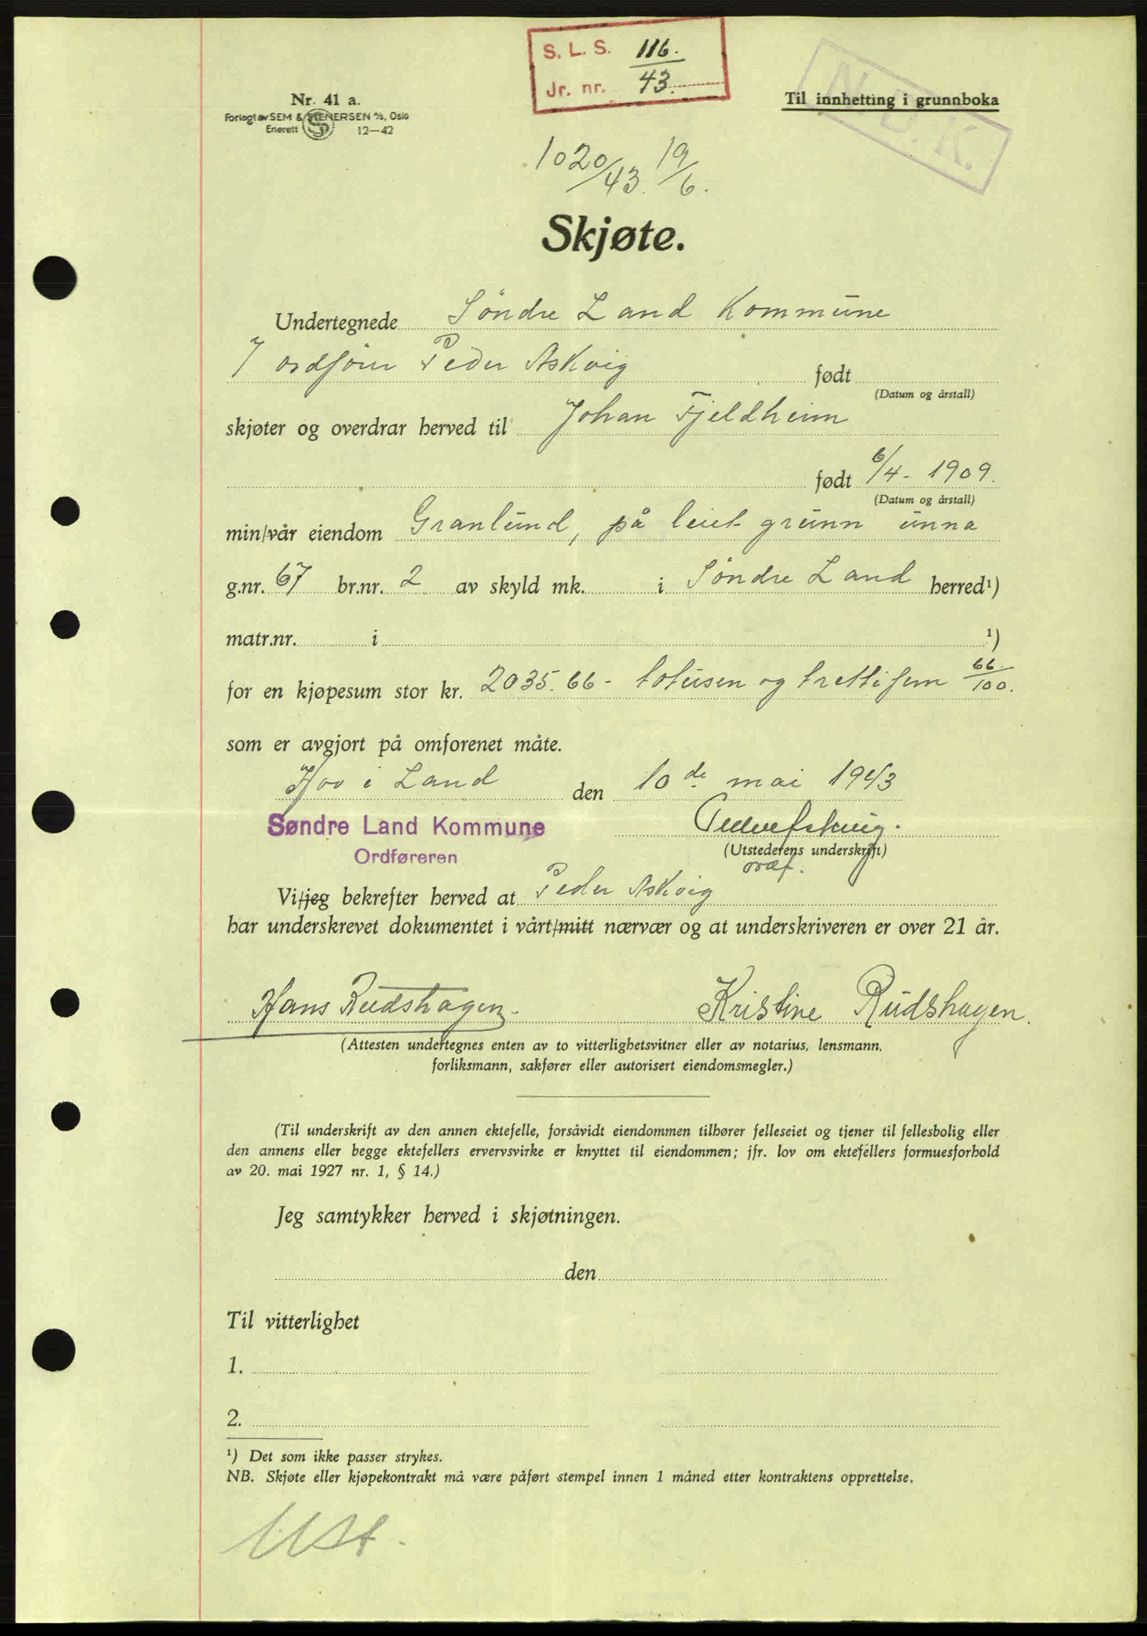 S. L. S. 116.
Jr. nr. 43.
Nr. 41 a.
Forlagt av SEM & STENERSEN A/S, Oslo
Enerett 12-42
Til innhefting i grunnboka
N. B. K.
1020/43. 19/6.
Skjøte.
Undertegnede Söndre Land Kommune
/ ordförer Peder Askvig født
(Datum og årstall)
skjøter og overdrar herved til Johan Fjeldheim
født 6/4 - 1909.
(Datum og årstall)
min/vår eiendom Granlund, på leiet grunn unna
g.nr. 67 br.nr. 2 av skyld mk. i Söndre Land herred¹)
matr.nr. i ¹)
for en kjøpesum stor kr. 2035.66 - totusen og trettifem 66/100.
som er avgjort på omforenet måte.
Hov i Land den 10de mai 1943
Søndre Land Kommune
Ordføreren
Peder Askvig.
(Utstederens underskrift)
ordf.
Vi/jeg bekrefter herved at Peder Askvig
har underskrevet dokumentet i vårt/mitt nærvær og at underskriveren er over 21 år.
Hans Rudshagen. Kristine Rudshagen.
(Attesten undertegnes enten av to vitterlighetsvitner eller av notarius, lensmann,
forliksmann, sakfører eller autorisert eiendomsmegler.)
(Til underskrift av den annen ektefelle, forsåvidt eiendommen tilhører felleseiet og tjener til fellesbolig eller
den annens eller begge ektefellers ervervsvirke er knyttet til eiendommen; jfr. lov om ektefellers formuesforhold
av 20. mai 1927 nr. 1, § 14.)
Jeg samtykker herved i skjøtningen.
den
Til vitterlighet
1.
2.
¹) Det som ikke passer strykes.
NB. Skjøte eller kjøpekontrakt må være påført stempel innen 1 måned etter kontraktens opprettelse.